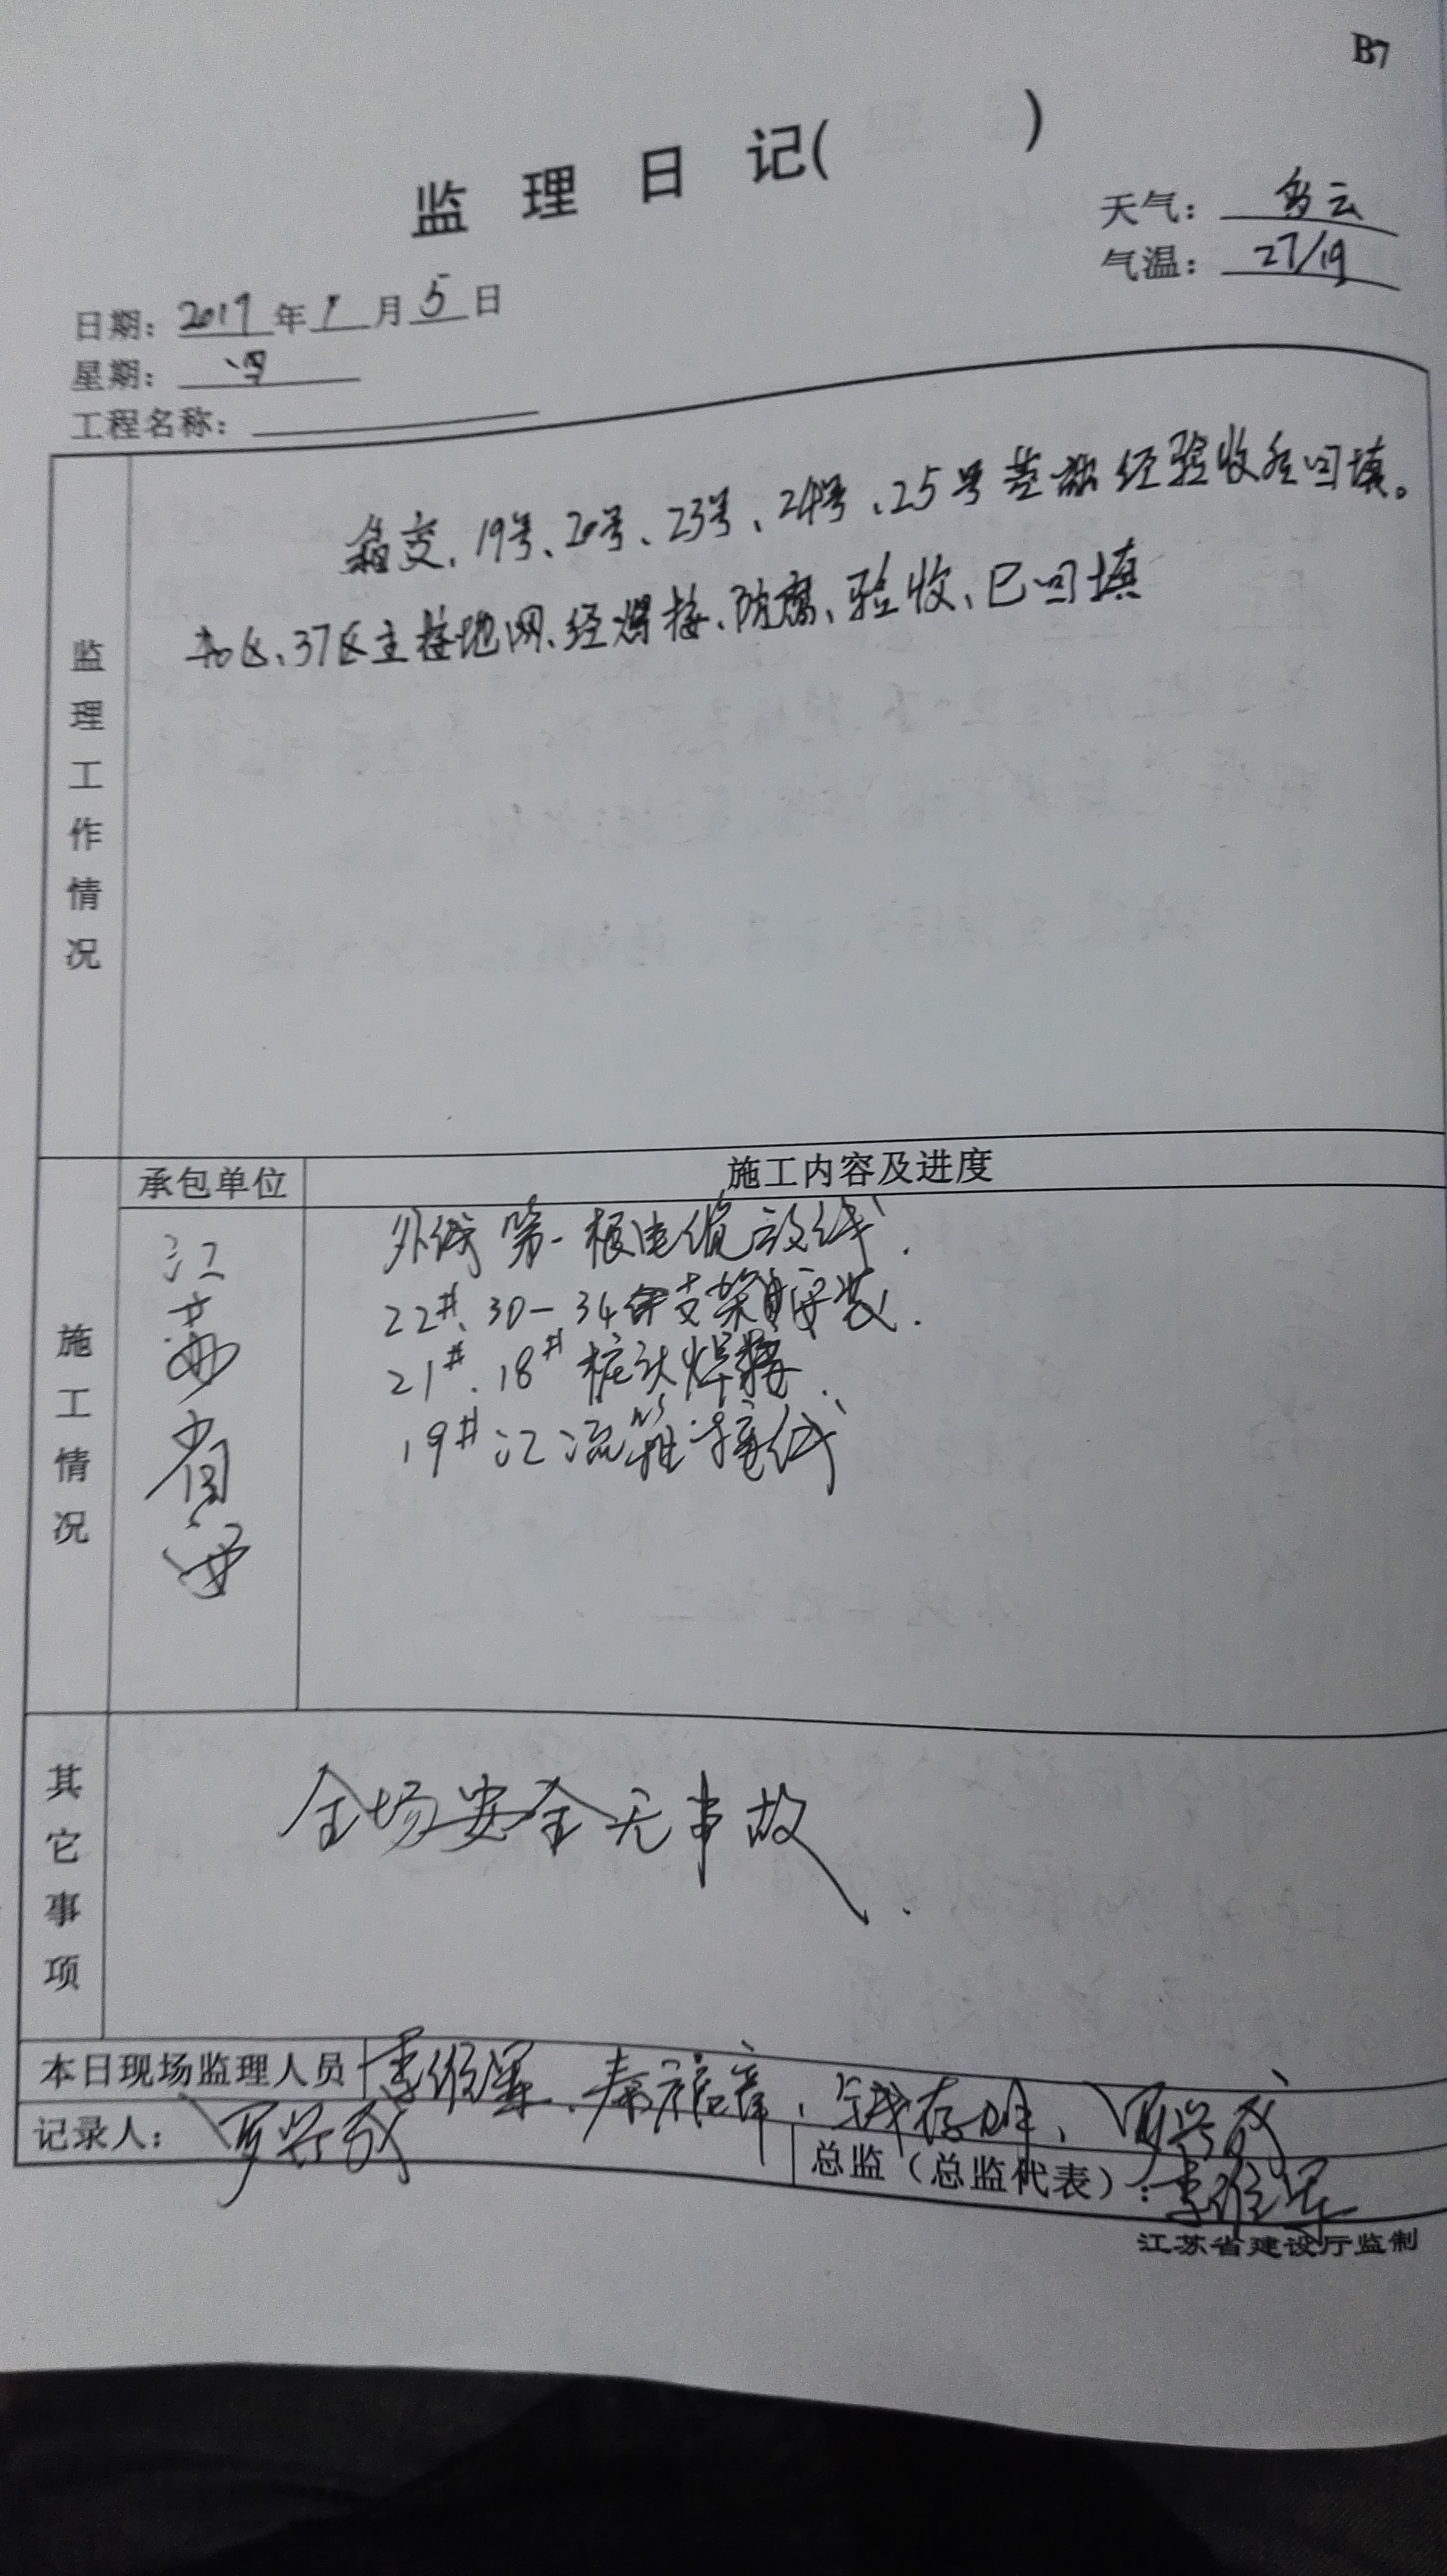 B7
监理日记( )
天气：多云
气温：27/19
日期：2017年 月5日
星期：四
工程名称：
箱变、19号、20号、23号、24号、25号基础经验收后回填。
区、37区主接地网、经焊接、防腐、验收、已回填
监理工作情况
承包单位 施工内容及进度
施工情况
江苏省安
外线第一根电缆放线.
22#、30-34#支架安装.
21#、18#桩头焊接.
19#汇流箱接线
其它事项
全场安全无事故.
本日现场监理人员 李维军、
记录人：
总监（总监代表）：李维军
江苏省建设厅监制